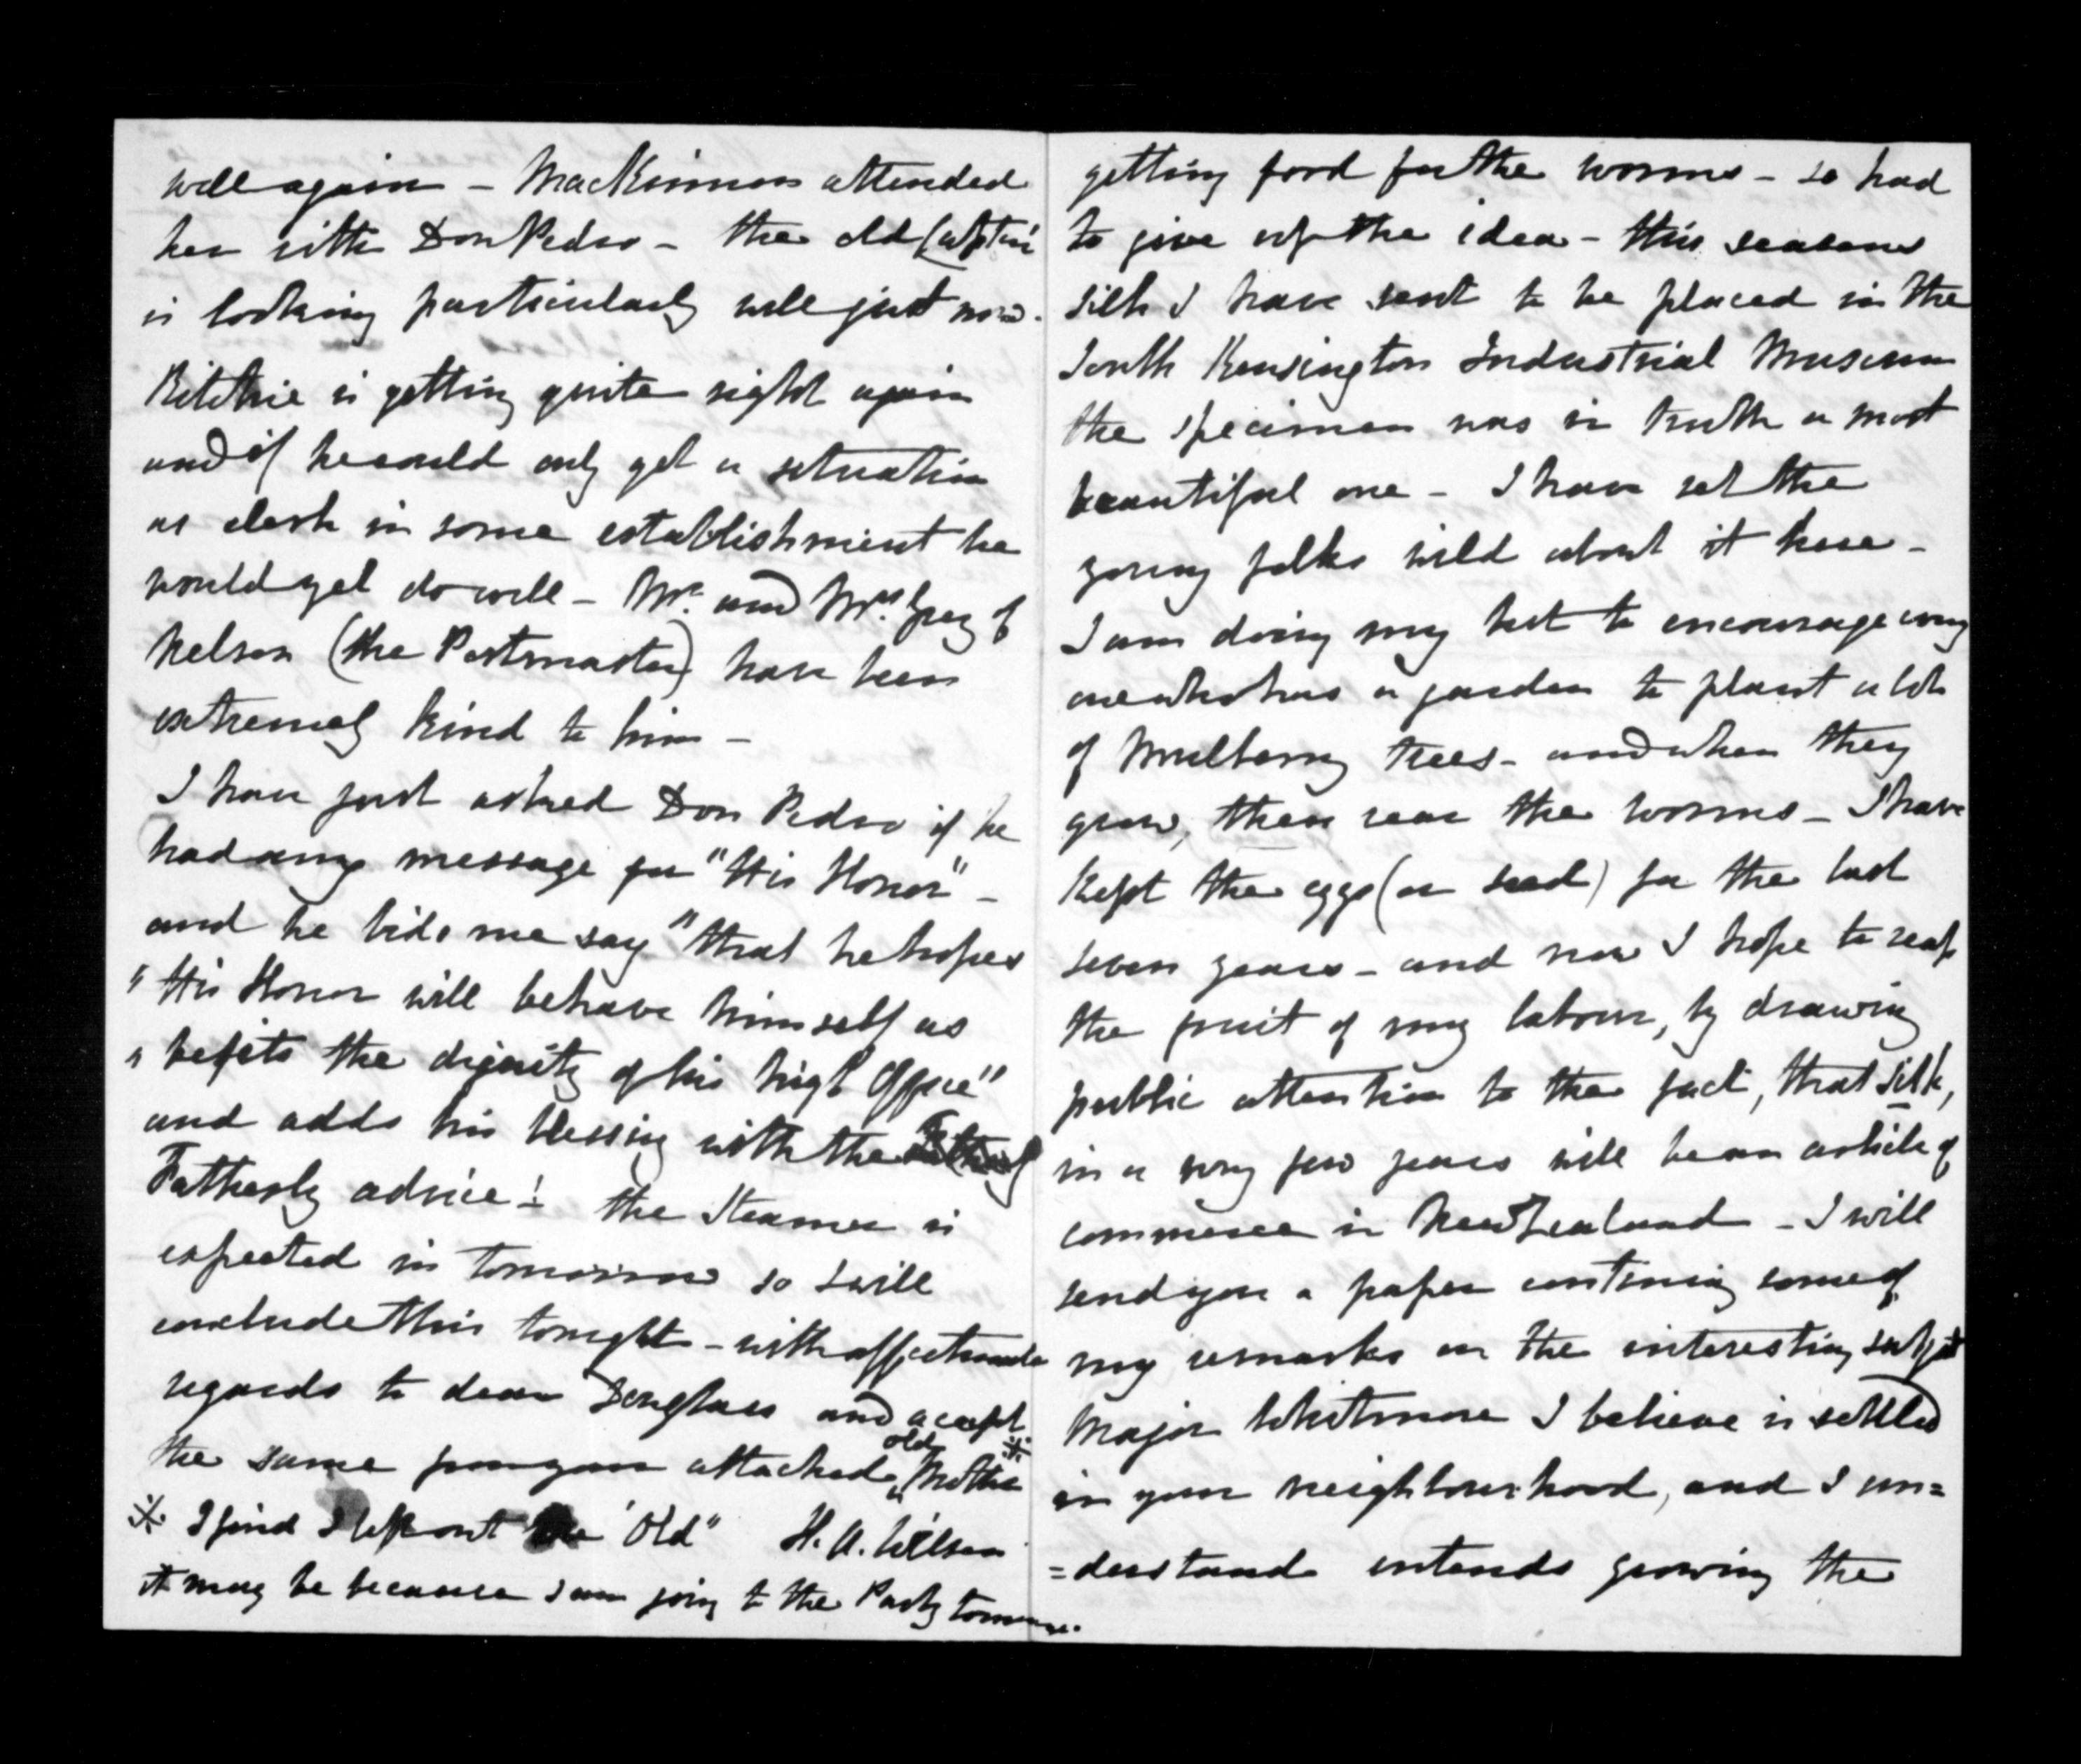 well again - MacKinnon attended
her with Don Pedro - the old Captain
is looking particularly well just now.
Ritchie is getting quite right again
and if he could only get a situation
as clerk in some establishment he
would yet do well - Mr. and Mrs. Grey of
Nelson (the Postmaster) have been
extremely kind to him -
I have just asked Don Pedro if he
had any message for "His Honor" -
and he bids me say "that he hopes
" His Honor will behave himself as
" befits the dignity of his high Office"
and adds his blessing with the
Fatherly advice! the Steamer is
expected in tomorrow so I will
conclude this tonight - with affectionate
regards to dear Douglas and accept
the same from your attached old Mother ※
※ I find I left out the "Old" H. A. Wilson
it may be because I am going to the Party tomorrow.
getting food for the worms - so had
to give up the idea - this seasons
silk I have sent to be placed in the
South Kensington Industrial Museum
the specimen was in truth a most
beautiful one - I have set the
young folks wild about it here -
I am doing my best to encourage every
one who has a garden to plant a lot
of Mulberry trees - and when they
grow, then rear the worms - I have
kept the eggs (or seed) for the last
seven years - and now I hope to reap
the fruit of my labour, by drawing
public attention to the fact, that silk,
in a very few years will be an article of
commerce in New Zealand - I will
send you a paper contining some of
my remarks on the interesting subject
Major Whitmore I believe is settled
in your neighbourhood, and I un=
=derstand intends growing the